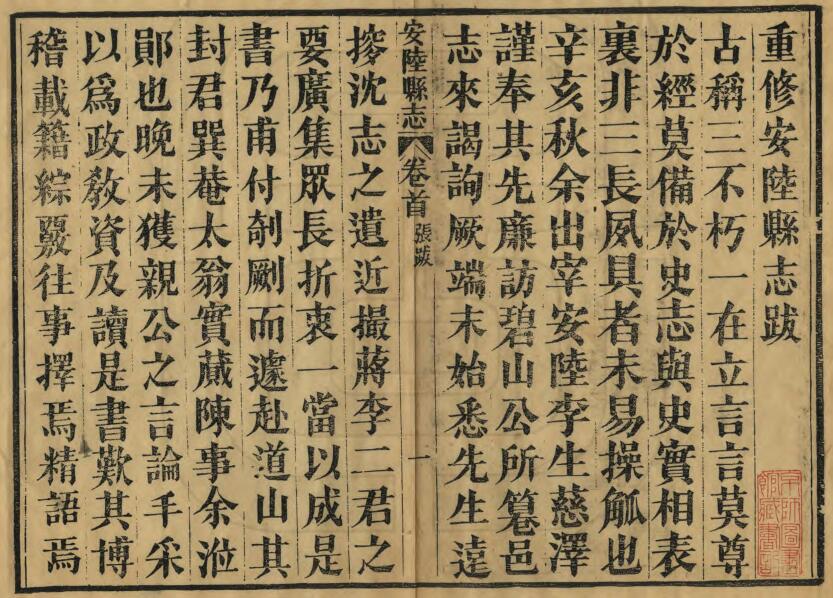 重修安陸縣志跋
古稱三不朽一在立言言莫尊
於經莫備於史志與史實相表
裏非三長夙具者未易操觚也
辛亥秋余出宰安陸李生慈澤
謹奉其先廉訪碧山公所篹邑
志來謁詢厥端末始悉先生遠
安陸縣志 卷首 張跋 一
搜沈志之遺近撮蔣李二君之
要廣集眾長折衷一當以成是
書乃甫付剞劂而遽赴道山其
封君巽菴太翁實蕆陳事余涖
鄖也晚未獲親公之言論手采
以爲政教資及讀是書歎其博
稽載籍綜覈往事擇焉精語焉